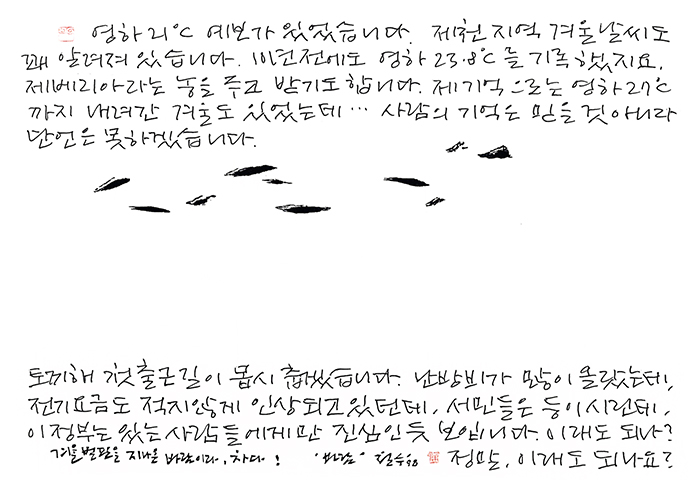 영하 21℃ 예보가 있었습니다. 제천 지역 겨울 날씨도
꽤 알려져 있습니다. 10년전에도 영하 23.8℃를 기록했지요.
제베리아라는 농을 주고 받기도 합니다. 제 기억으로는 영하 27℃
까지 내려간 겨울도 있었는데… 사람의 기억은 믿을 것 아니라
단언은 못하겠습니다.
토끼해 첫 출근길이 몹시 춥겠습니다. 난방비가 많이 올랐는데,
전기요금도 적지않게 인상되고 있던데, 서민들은 등이 시린데,
이 정부는 있는 사람들에게만 진심인듯 보입니다. 이래도 되나?
겨울벌판을 지나온 바람이라, 차다! '바람' 철수 98 정말, 이래도 되나요?